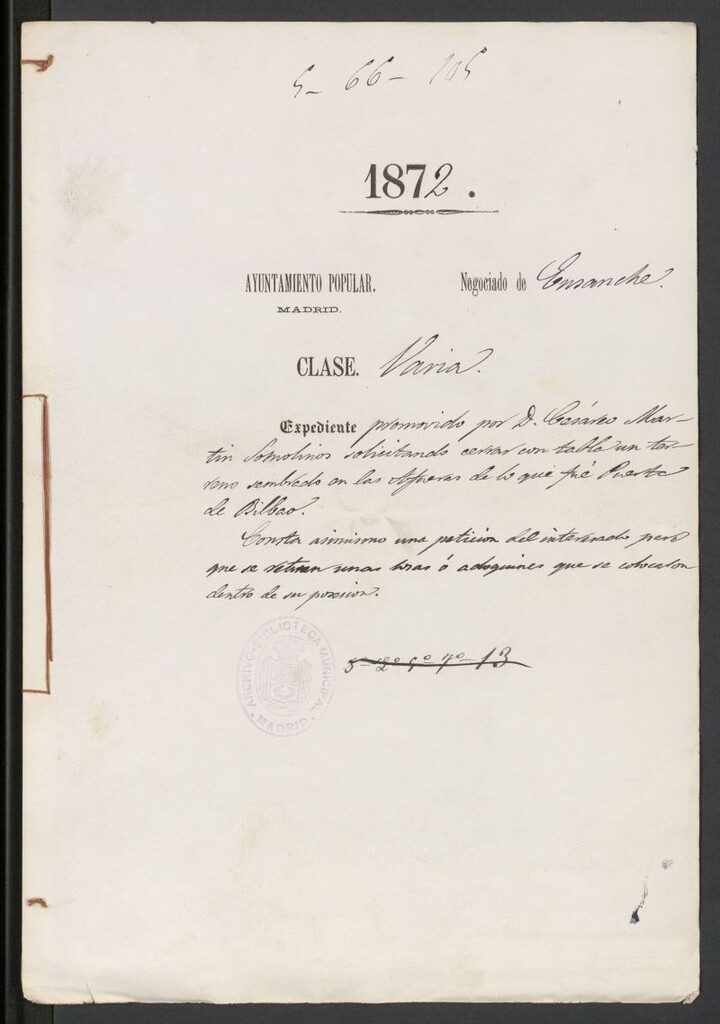 5- 66- 105
1872.
AYUNTAMIENTO POPULAR.
MADRID.
Negociado de Ensanche.
CLASE. Varia.
Expediente promovido por D. Cesáreo Mar-
tin Somolinos solicitando cerrar con tabla un ter-
reno sembrado en las Afueras de lo que fué Puerta
de Bilbao.
Consta asimismo una peticion del interesado para
que se retiren unas losas ó adoquines que se colocaron
dentro de su posesion.
ARCHIVO-BIBLIOTECA MUNICIPAL
MADRID